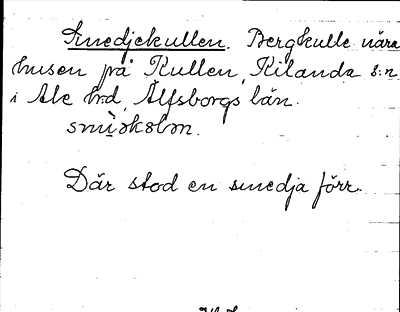 Smedjekullen. Bergkulle nära
husen på Kullen, Kilanda s:n
i Ale hd, Älfsborgs län.
Där stod en smedja förr.